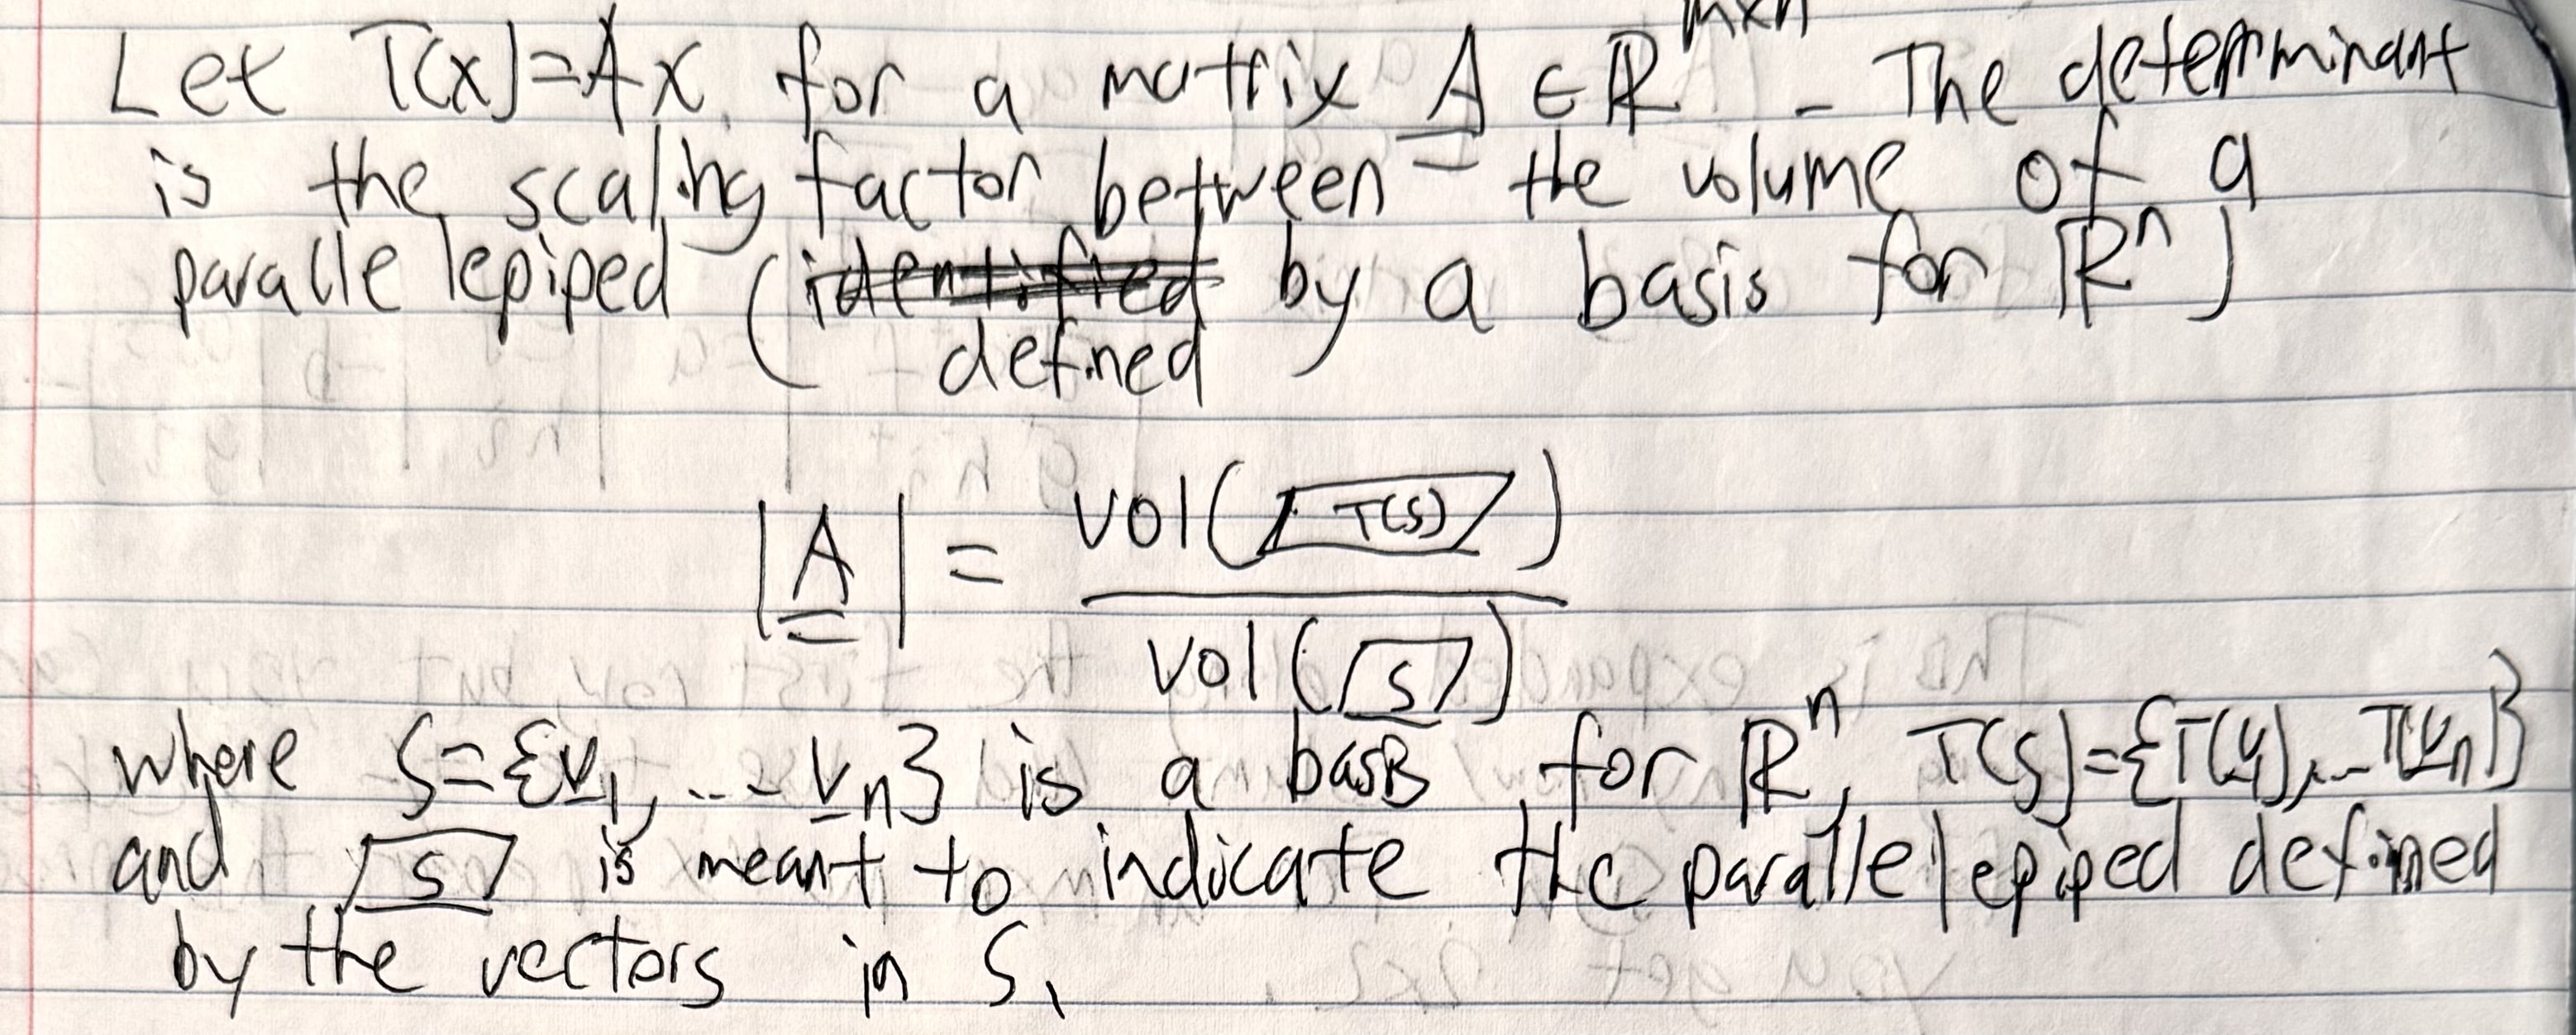 Let T(x)=Ax for a matrix A ∈ ℝ^{m×n}. The determinant
is the scaling factor between the volume of a
parallelepiped (defined by a basis for ℝ^n)
|A| = vol(T(S)) / vol(S)
where S={v_1, ... v_n} is a basis for ℝ^n, T(S)={T(v_1), ... T(v_n)}
and S is meant to indicate the parallelepiped defined
by the vectors in S.